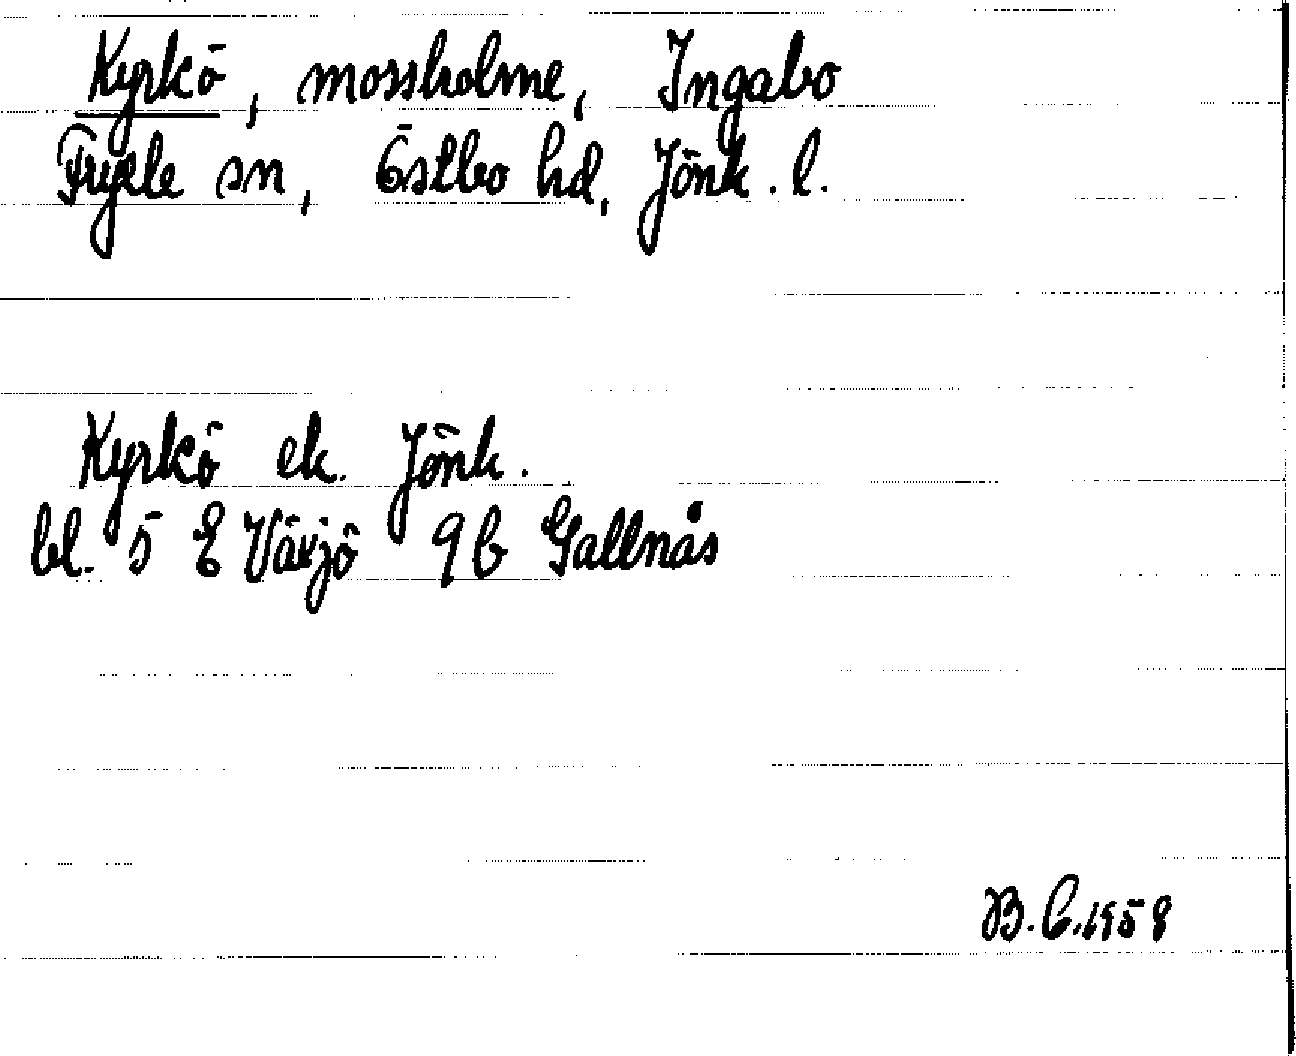 Kyrkö, mossholme, Ingabo
Fryele sn, Östbo hd, Jönk. l.
Kyrkö ek. Jönk.
bl. 5 E Växjö 9 b Gällnås
B.C. 1958